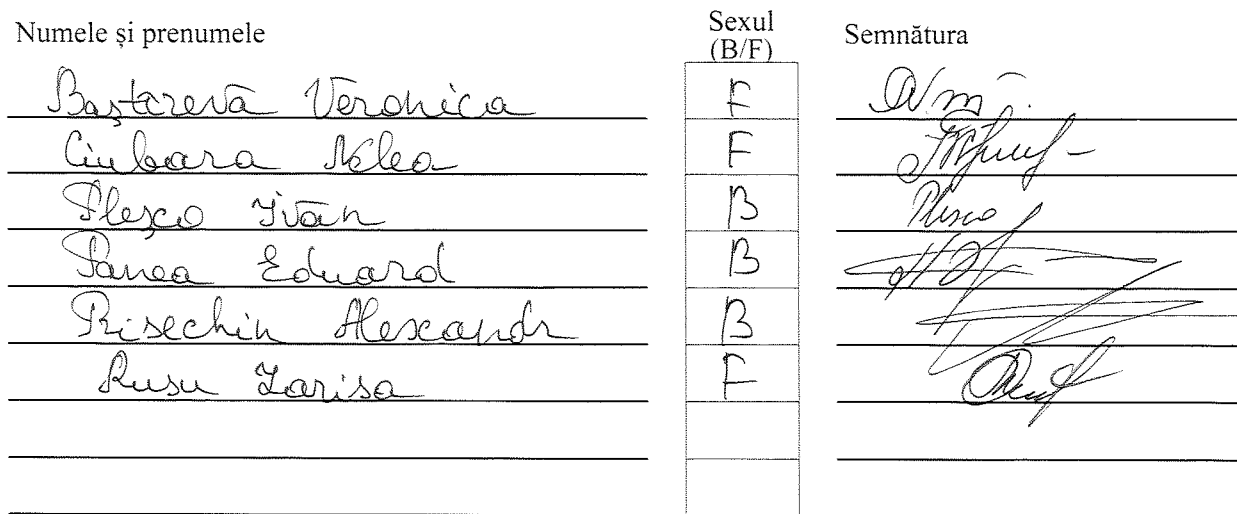 Numele și prenumele Sexul (B/F) Semnătura
Bașterevă Veronica F
Ciubara Nelea F
Pleșco Ivan B Plesco
Panea Eduard B
Risechin Alexandr B
Rusu Larisa F